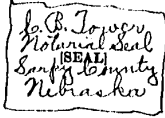 C. B. Tower
Notarial Seal
[SEAL]
Sarpy County
Nebraska